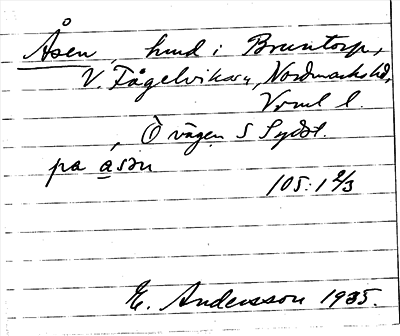 Åsen, hmd i Bruntorp,
V. Fågelviks sn, Nordmarks hd,
Vrml l.
Ö vägen S Sydöst.
på åsen
105:1 2/3
E. Andersson 1935.